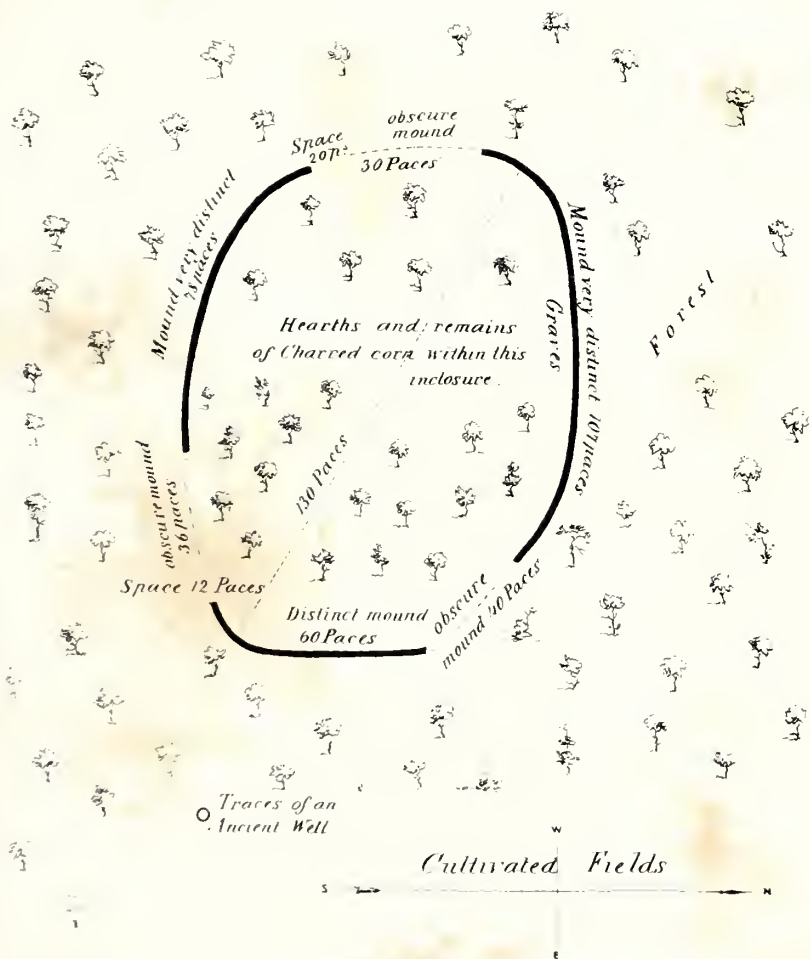 obscure
mound
Space
20 p.
30 Paces
Mound very distinct
78 paces
Mound very distinct 107 paces
Graves
Forest
Hearths and remains
of Charred corn within this
inclosure.
130 Paces
obscure mound
36 paces
Space 12 Paces
Distinct mound
60 Paces
obscure
mound 40 Paces
Traces of an
Ancient Well
W
Cultivated Fields
S
N
E